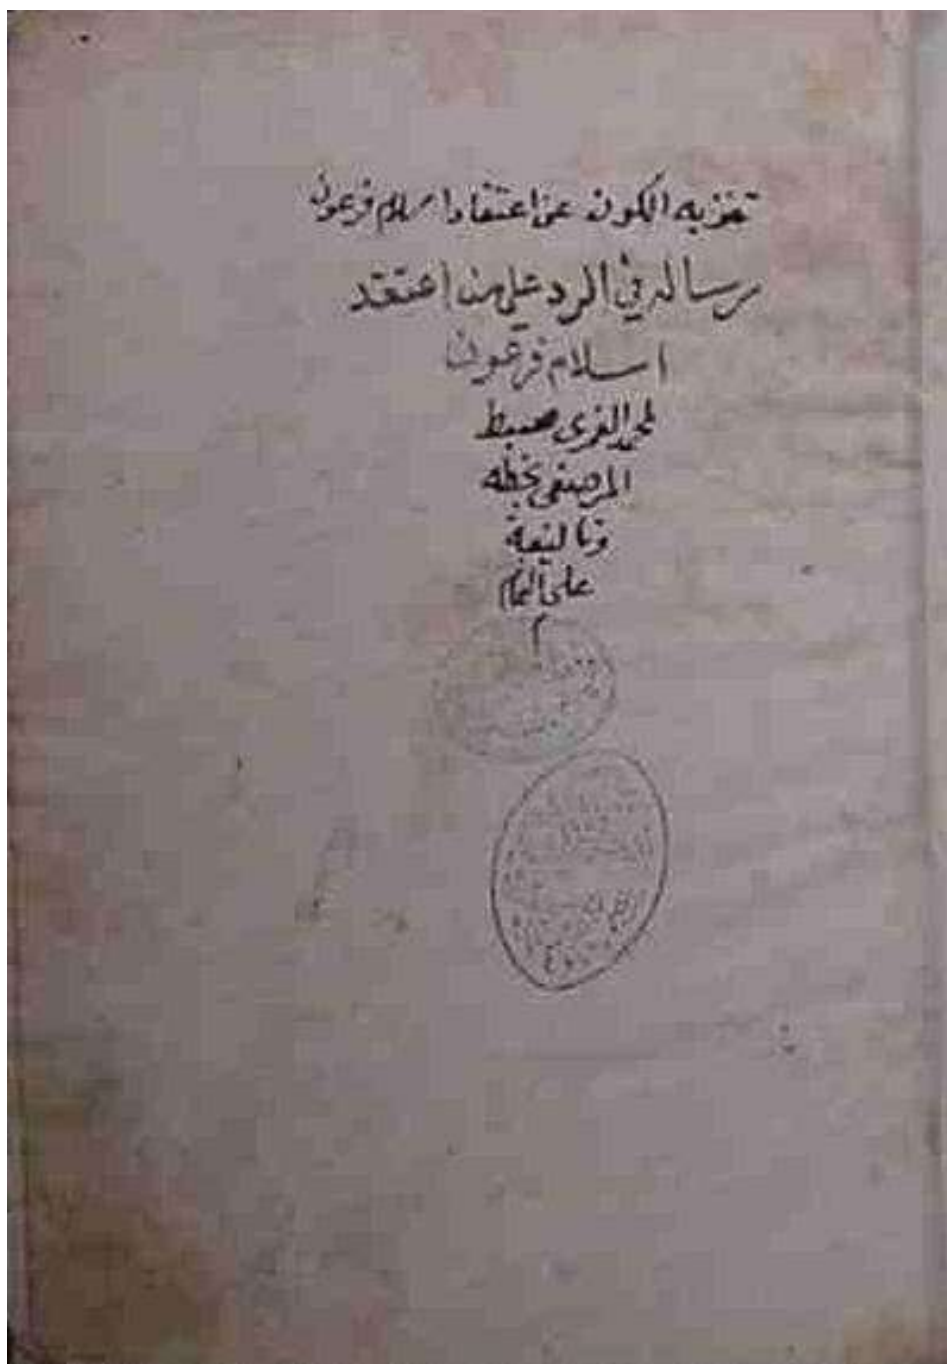 تنزيه الكون عن اعتقاد اسلام فرعون
رسالة في الرد على من اعتقد
اسلام فرعون
لمحمد الغمرى سبط
المرصفى بخطه
وتاليفه
على التمام
م